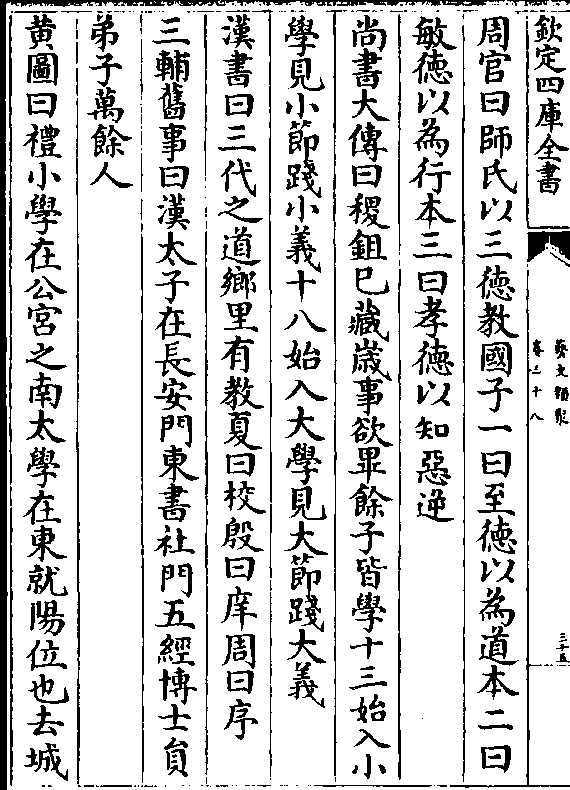 欽定四庫全書
藝文類聚
卷三十八
三十五
周官曰師氏以三德教國子一曰至德以為道本二曰
敏德以為行本三曰孝德以知惡逆
尚書大傳曰稷鉏已藏嵗事欲畢餘子皆學十三始入小
學見小節踐小義十八始入大學見大節踐大義
漢書曰三代之道鄉里有教夏曰校殷曰庠周曰序
三輔舊事曰漢太子在長安門東書社門五經博士貟
弟子萬餘人
黄圖曰禮小學在公宮之南太學在東就陽位也去城